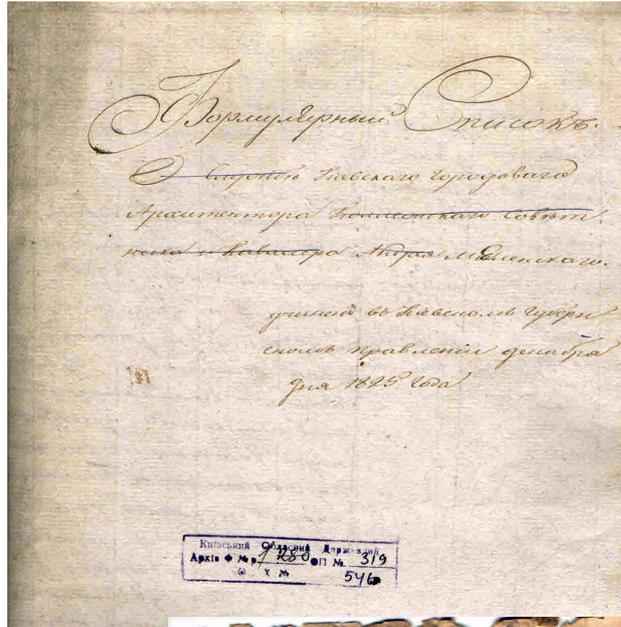 Формулярный Списокъ.
О службѣ Кіевскаго городоваго
Архитектора Коллежскаго Совѣт
ника и Кавалера Андрея Меленскаго.
учиненъ въ Кіевскомъ Губерн
скомъ правленіи декабря
дня 1825 года
Київський Обласний Державний
Архів Ф № р. 1280 ОП № 319
№ 546